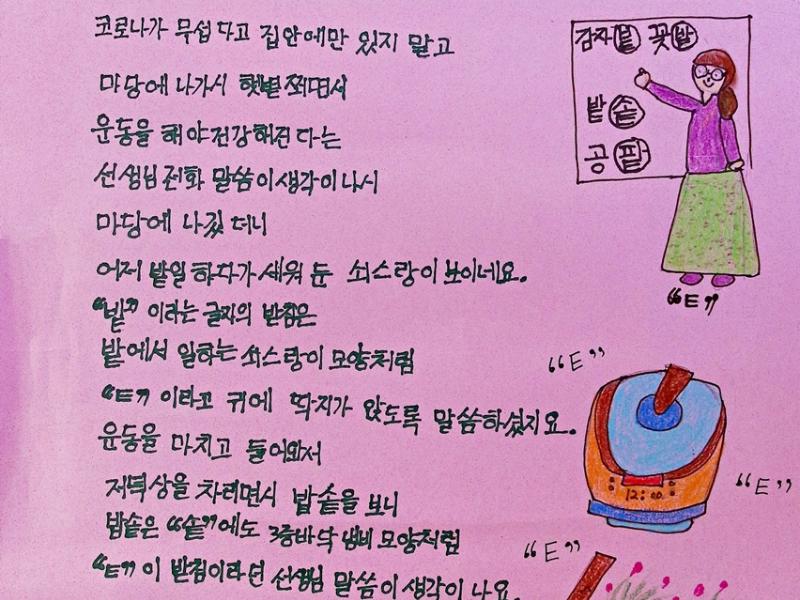 코로나가 무섭다고 집안에만 있지 말고
마당에 나가서 햇볕 쬐면서
운동을 해야 건강해진다는
선생님 전화 말씀이 생각이 나서
마당에 나갔더니
어제 밭일 하다가 세워 둔 쇠스랑이 보이네요.
“밭” 이라는 글자의 받침은
밭에서 일하는 쇠스랑이 모양처럼
“ㅌ” 이라고 귀에 딱지가 앉도록 말씀하셨지요.
운동을 마치고 들어와서
저녁상을 차리면서 밥솥을 보니
밥솥은 “솥”에도 3중바닥 냄비 모양처럼
“ㅌ”이 받침이라던 선생님 말씀이 생각이 나요.
감자밭 꽃밭
밭솥
공팥
“ㅌ”
“ㅌ”
12:00
“ㅌ”
“ㅌ”